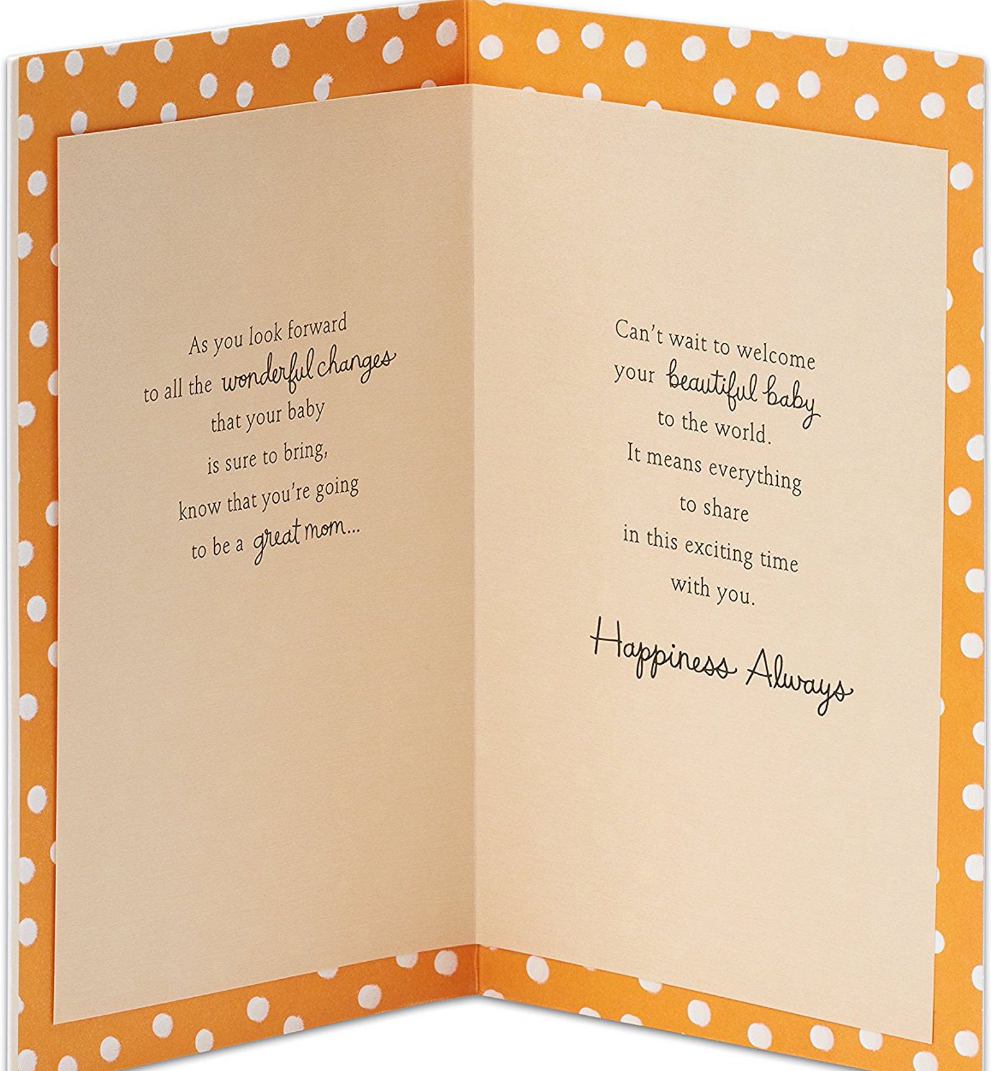 As you look forward
to all the wonderful changes
that your baby
is sure to bring,
know that you're going
to be a great mom...
Can't wait to welcome
your beautiful baby
to the world.
It means everything
to share
in this exciting time
with you.
Happiness Always